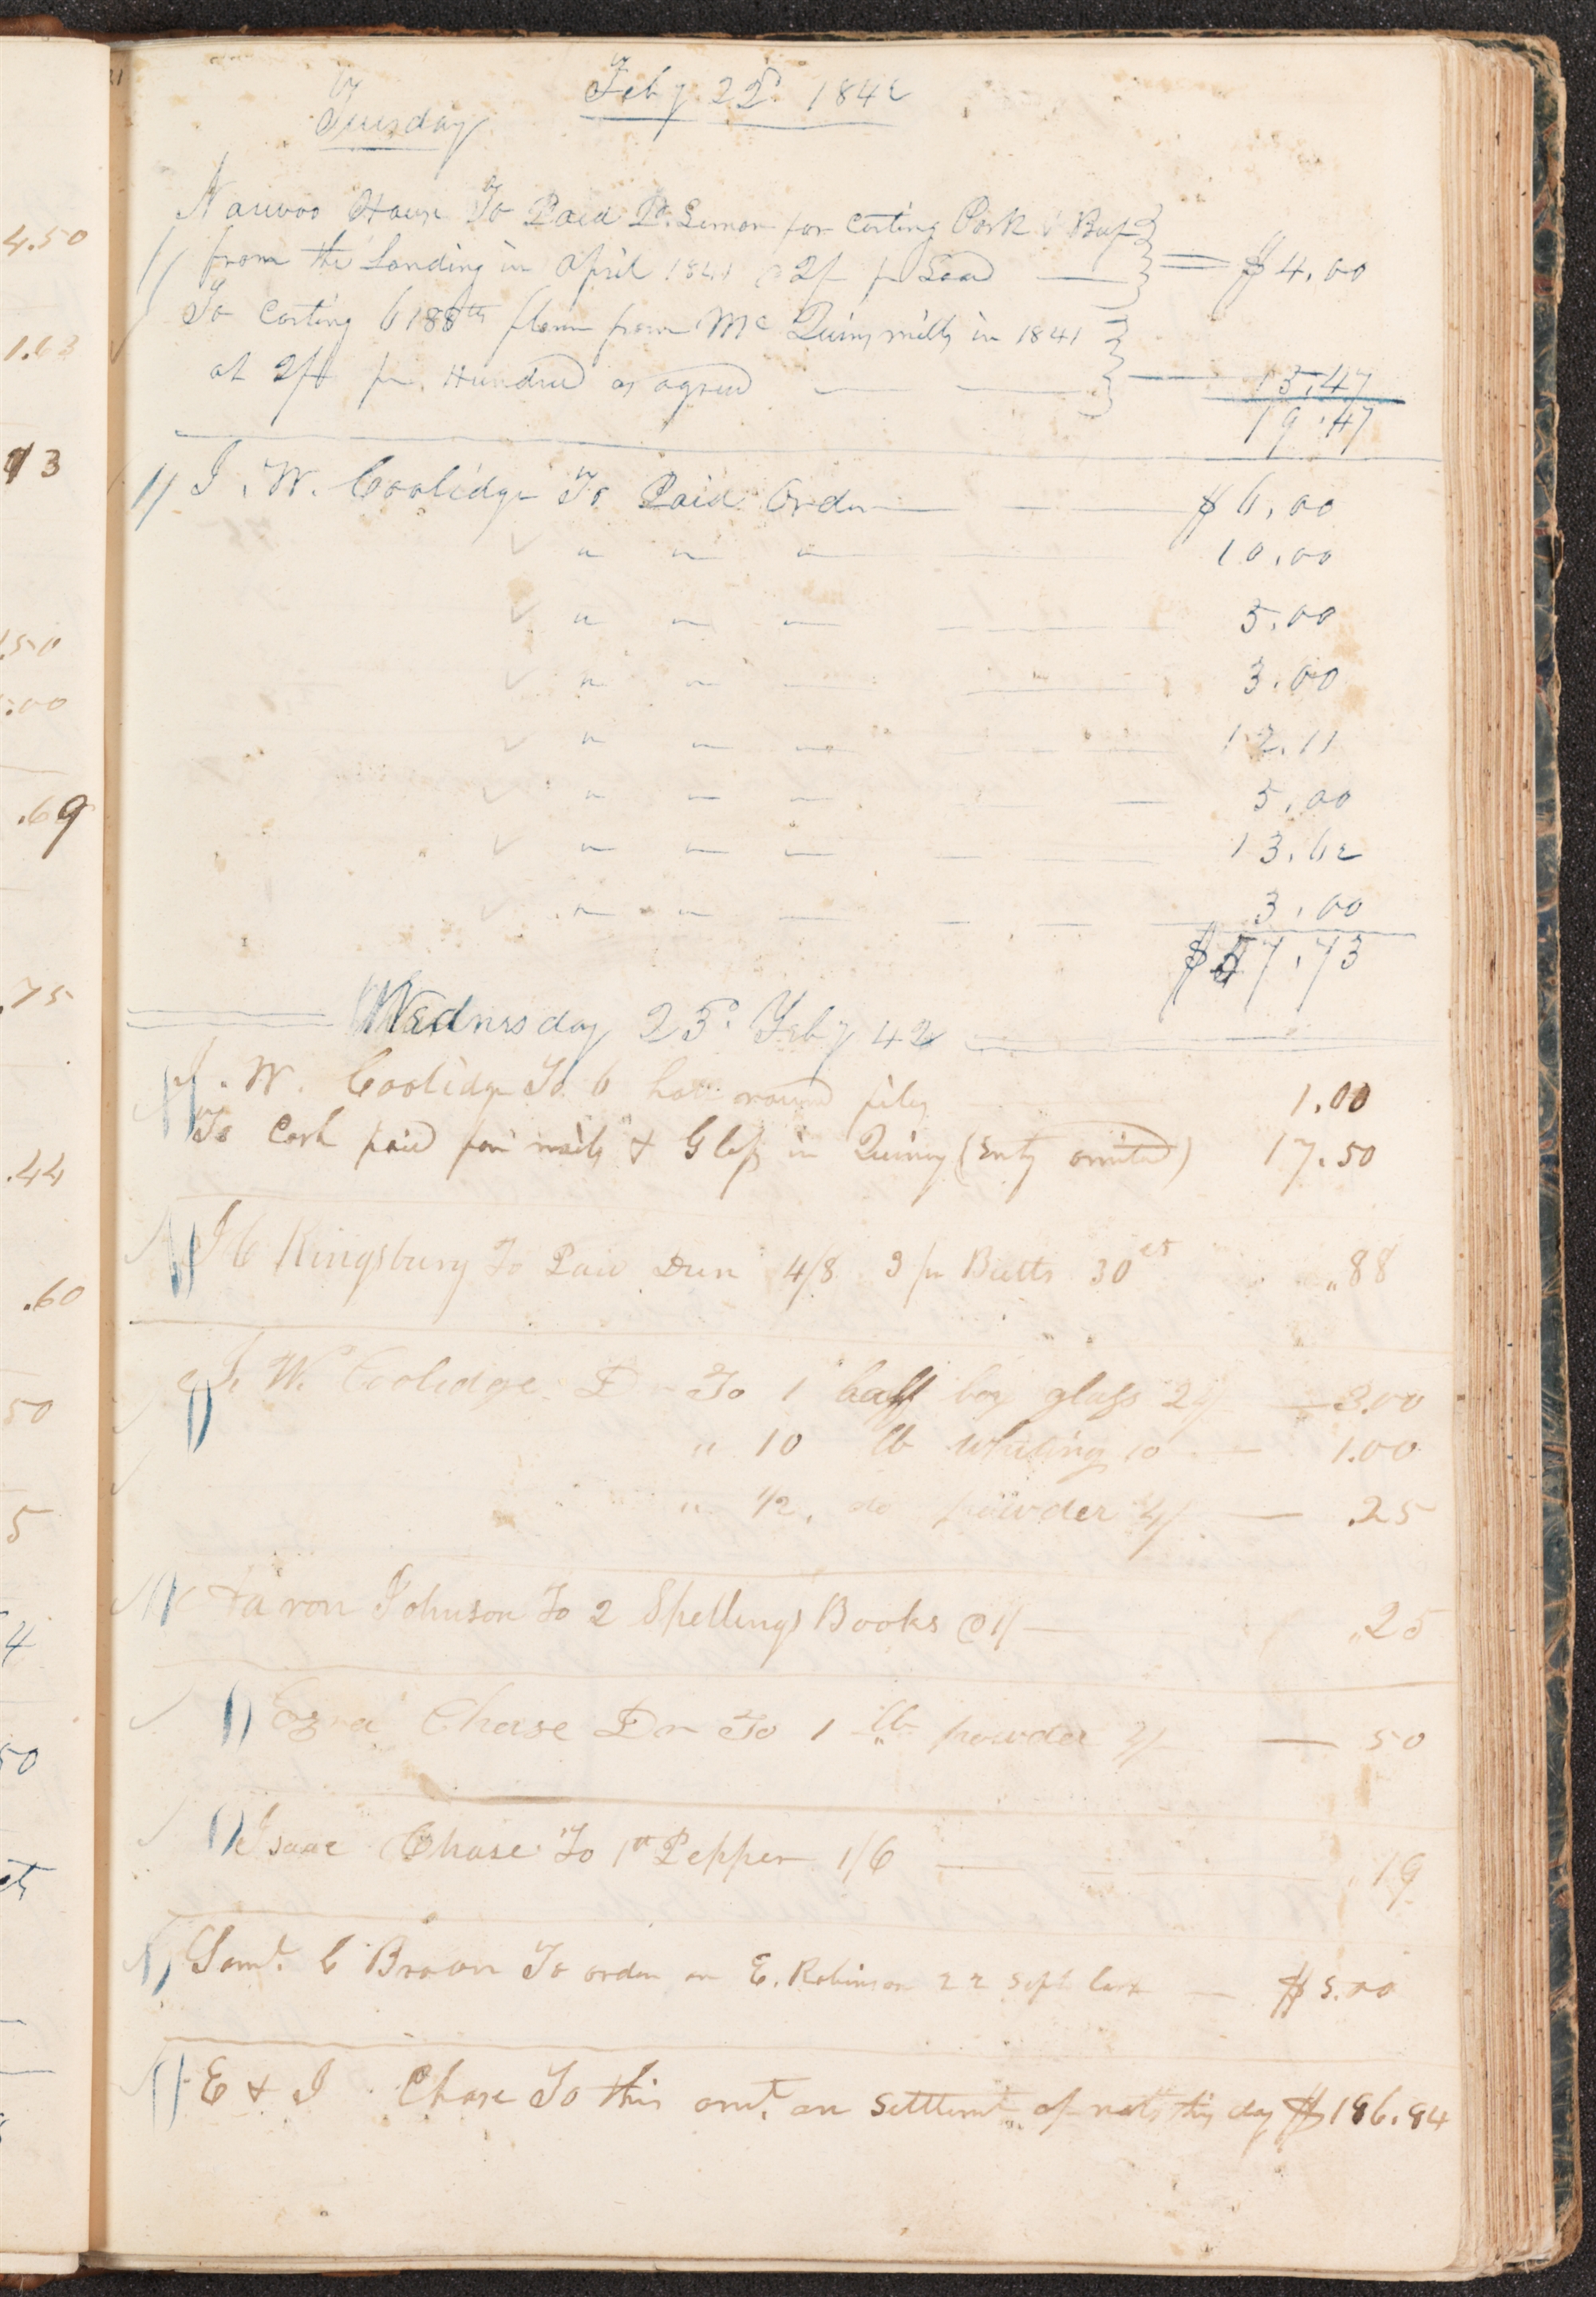 4.50
1.63
13
.50
.00
.69
.75
.44
.60
50
5
4
50
Feby 22d. 1842
Tuesday
Nauvoo House To Paid D. for Carting Pork & Beef
from the Landing in April 1841 @ 2/ pr Load $4.00
To Carting 6188 lbs flour from Mc Quincy mills in 1841
at 2/ pr. Hundred as agreed 15.47
19.47
J. W. Coolidge To Paid Order $6.00
" " " 10.00
" " " 5.00
" " " 3.00
" " " 12.11
" " " 5.00
" " " 13.62
" " " 3.00
$57.73
Wednesday 23d. Feby 42
J. W. Coolidge To 6 half round files 1.00
To Cash paid for nails & Glass in Quincy (Enty omitted) 17.50
J C Kingsbury To Paid 4/8 3 pr Butts 30cts .88
J. W. Coolidge Dr To 1 half box glass 24/ 3.00
" 10 lb whiting 10 1.00
" 1/2. do powder 4/ .25
Aaron Johnson To 2 Spellings Books @ 1/ .25
Ezra Chase Dr To 1 lb powder 4/ 50
Isaac Chase To 1 lb Pepper 1/6 .19
Saml. C Brown To order on E. Robinson 22 Sept last $5.00
E & I Chase To this amt. on Settlemt. of this day $186.84